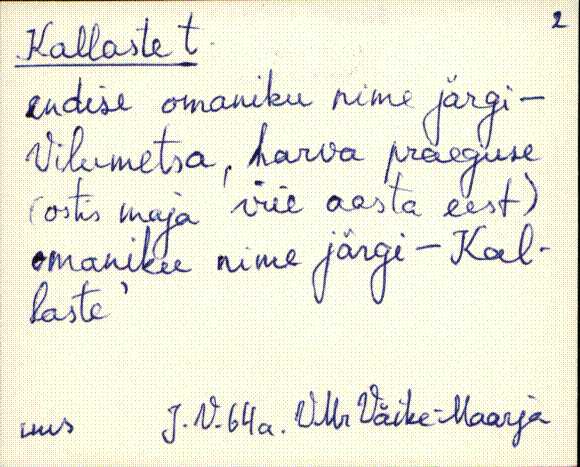 2
Kallaste t.
endise omaniku nime järgi –
Vilumetsa, harva praeguse
(ostis maja viie aasta eest)
omaniku nime järgi – Kal-
laste'
uus J. V. 64a. VMr Väike-Maarja